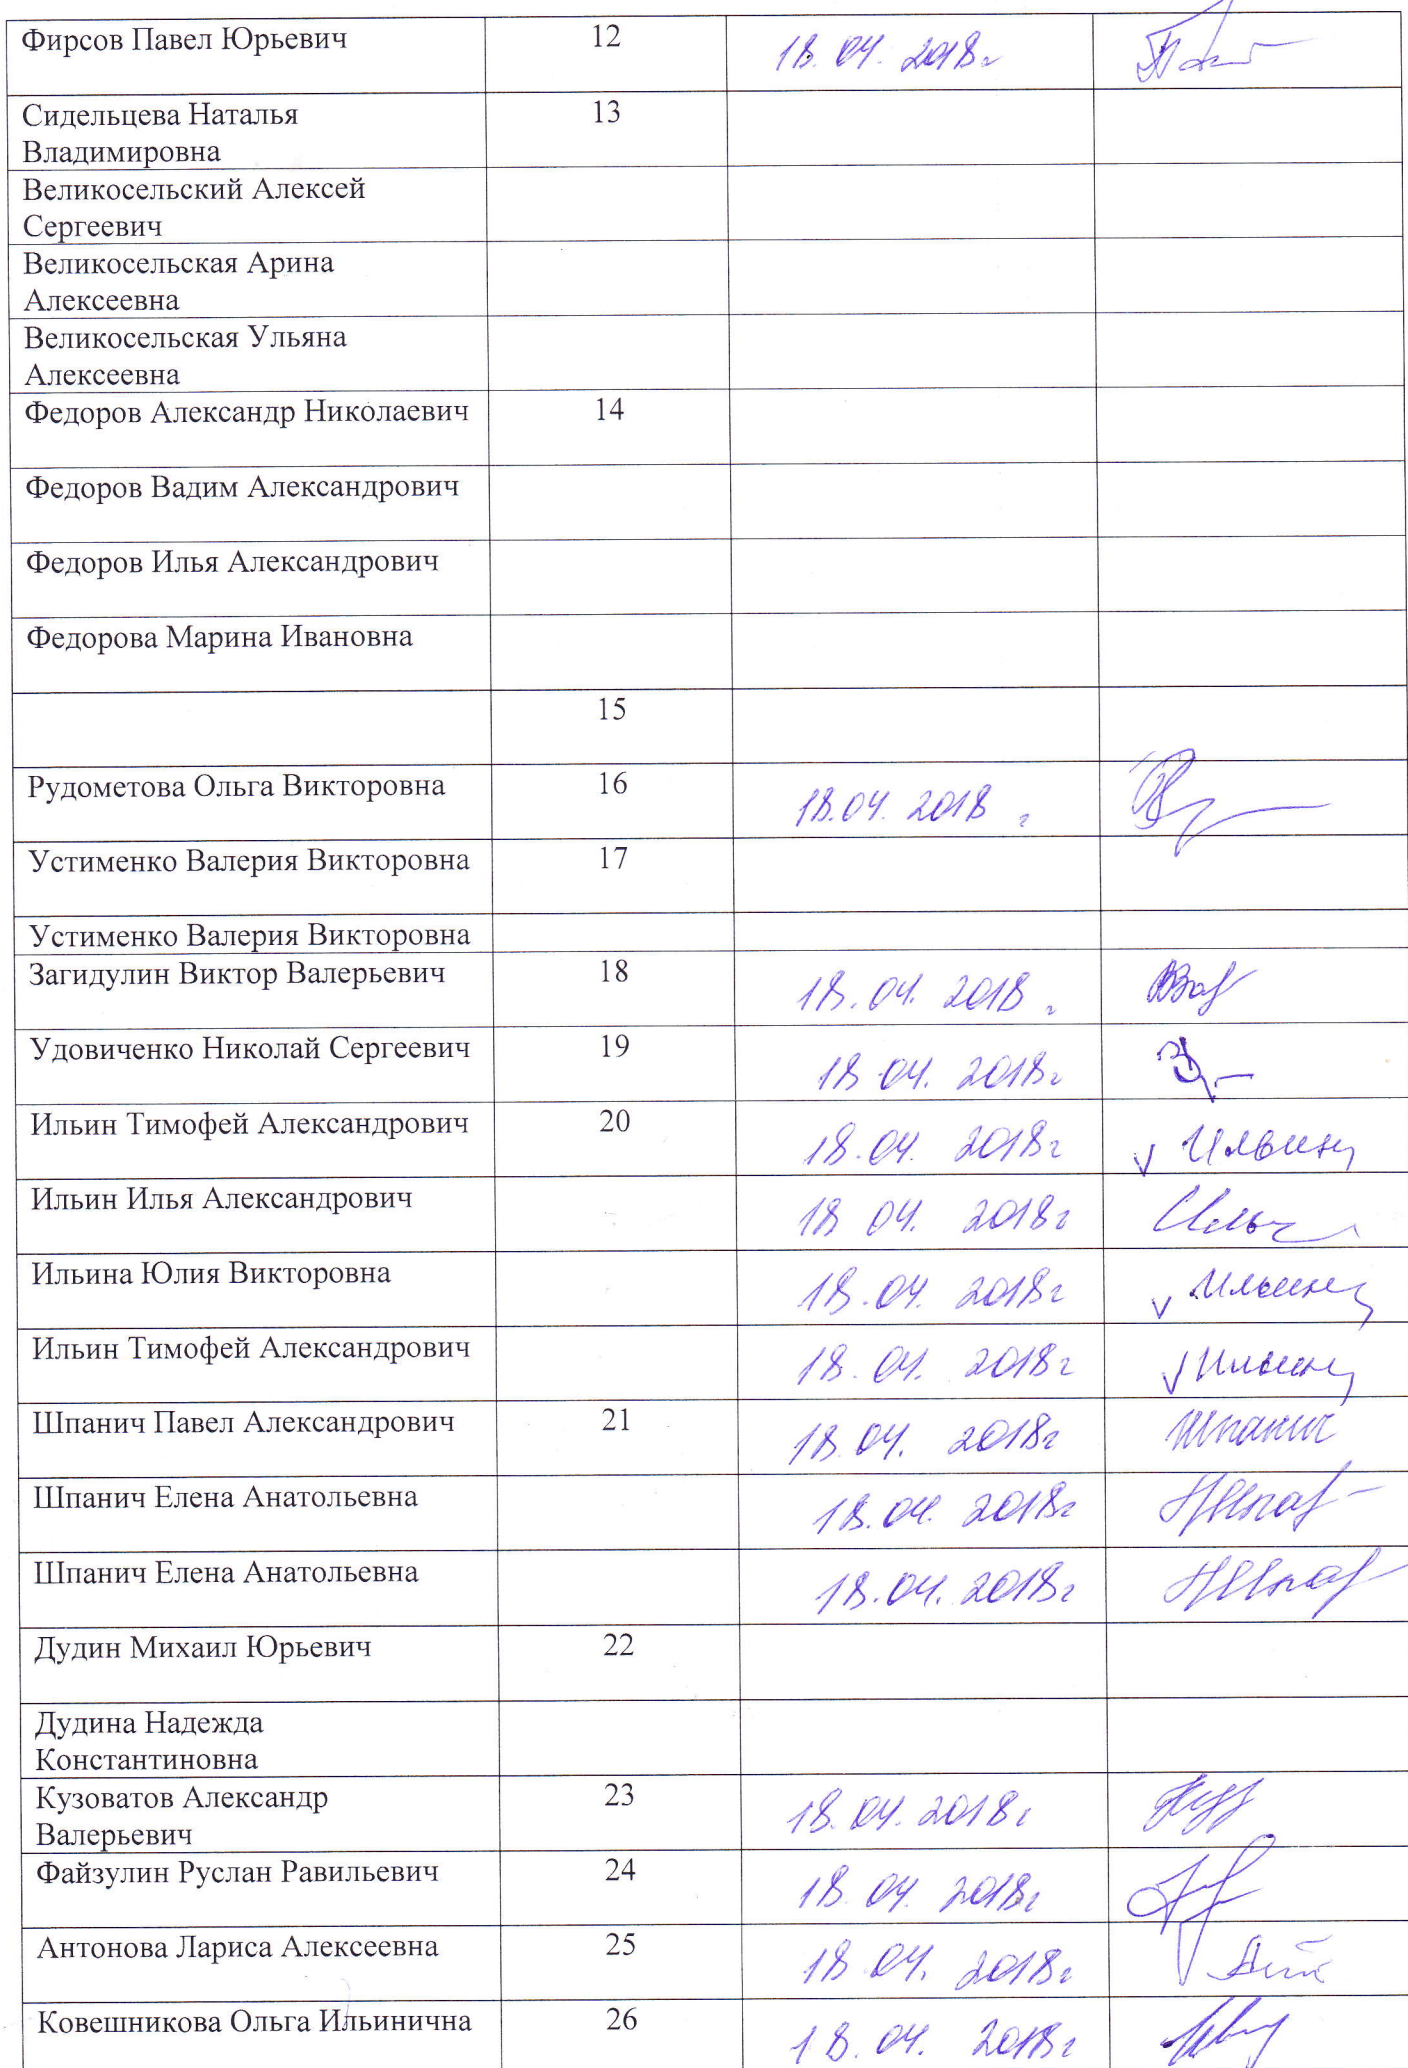 Фирсов Павел Юрьевич 12 18.04.2018г
Сидельцева Наталья 13
Владимировна
Великосельский Алексей
Сергеевич
Великосельская Арина
Алексеевна
Великосельская Ульяна
Алексеевна
Федоров Александр Николаевич 14
Федоров Вадим Александрович
Федоров Илья Александрович
Федорова Марина Ивановна
15
Рудометова Ольга Викторовна 16 18.04.2018 г
Устименко Валерия Викторовна 17
Устименко Валерия Викторовна
Загидулин Виктор Валерьевич 18 18.04.2018 г
Удовиченко Николай Сергеевич 19 18.04.2018г
Ильин Тимофей Александрович 20 18.04.2018г
Ильин Илья Александрович 18.04.2018г
Ильина Юлия Викторовна 18.04.2018г
Ильин Тимофей Александрович 18.04.2018г
Шпанич Павел Александрович 21 18.04.2018г Шпанич
Шпанич Елена Анатольевна 18.04.2018г
Шпанич Елена Анатольевна 18.04.2018г
Дудин Михаил Юрьевич 22
Дудина Надежда
Константиновна
Кузоватов Александр 23 18.04.2018г
Валерьевич
Файзулин Руслан Равильевич 24 18.04.2018г
Антонова Лариса Алексеевна 25 18.04.2018г
Ковешникова Ольга Ильинична 26 18.04.2018г